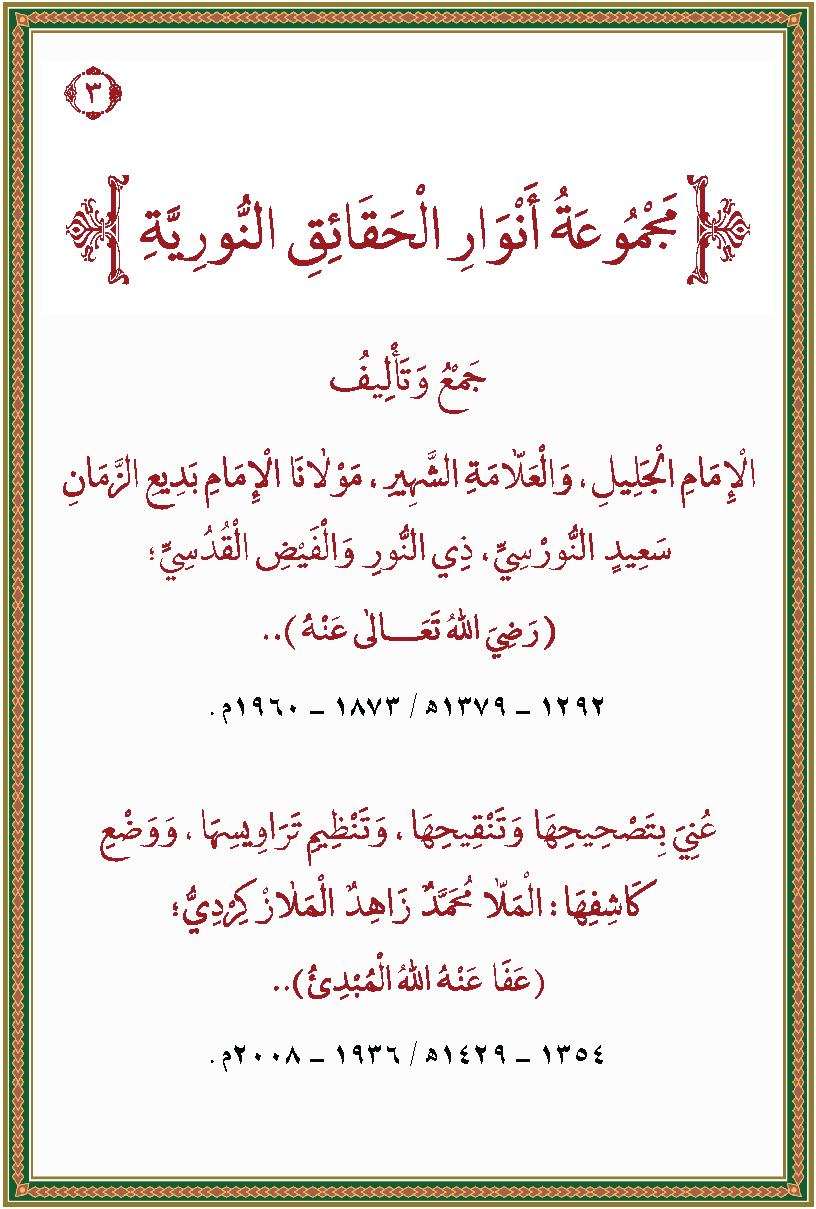 ٣
مَجْمُوعَةُ أَنْوَارِ الْحَقَائِقِ النُّورِيَّةِ
جَمْعُ وَتَأْلِيفُ
الْإِمَامِ الْجَلِيلِ، وَالْعَلَّامَةِ الشَّهِيرِ، مَوْلَانَا الْإِمَامِ بَدِيعِ الزَّمَانِ
سَعِيدٍ النُّورْسِيِّ، ذِي النُّورِ وَالْفَيْضِ الْقُدُسِيِّ؛
(رَضِيَ اللهُ تَعَـــالٰى عَنْهُ)..
١٢٩٢ ــ ١٣٧٩ه/ ١٨٧٣ ــ ١٩٦٠م.
عُنِيَ بِتَصْحِيحِهَا وَتَنْقِيحِهَا، وَتَنْظِيمِ تَرَاوِيسِهَا، وَوَضْعِ
كَاشِفِهَا: الْمَلَّا مُحَمَّدٌ زَاهِدٌ الْمَلَازْكِرْدِيُّ؛
(عَفَا عَنْهُ اللهُ الْمُبْدِئُ)..
١٣٥٤ ــ ١٤٢٩ه/ ١٩٣٦ ــ ٢٠٠٨م.